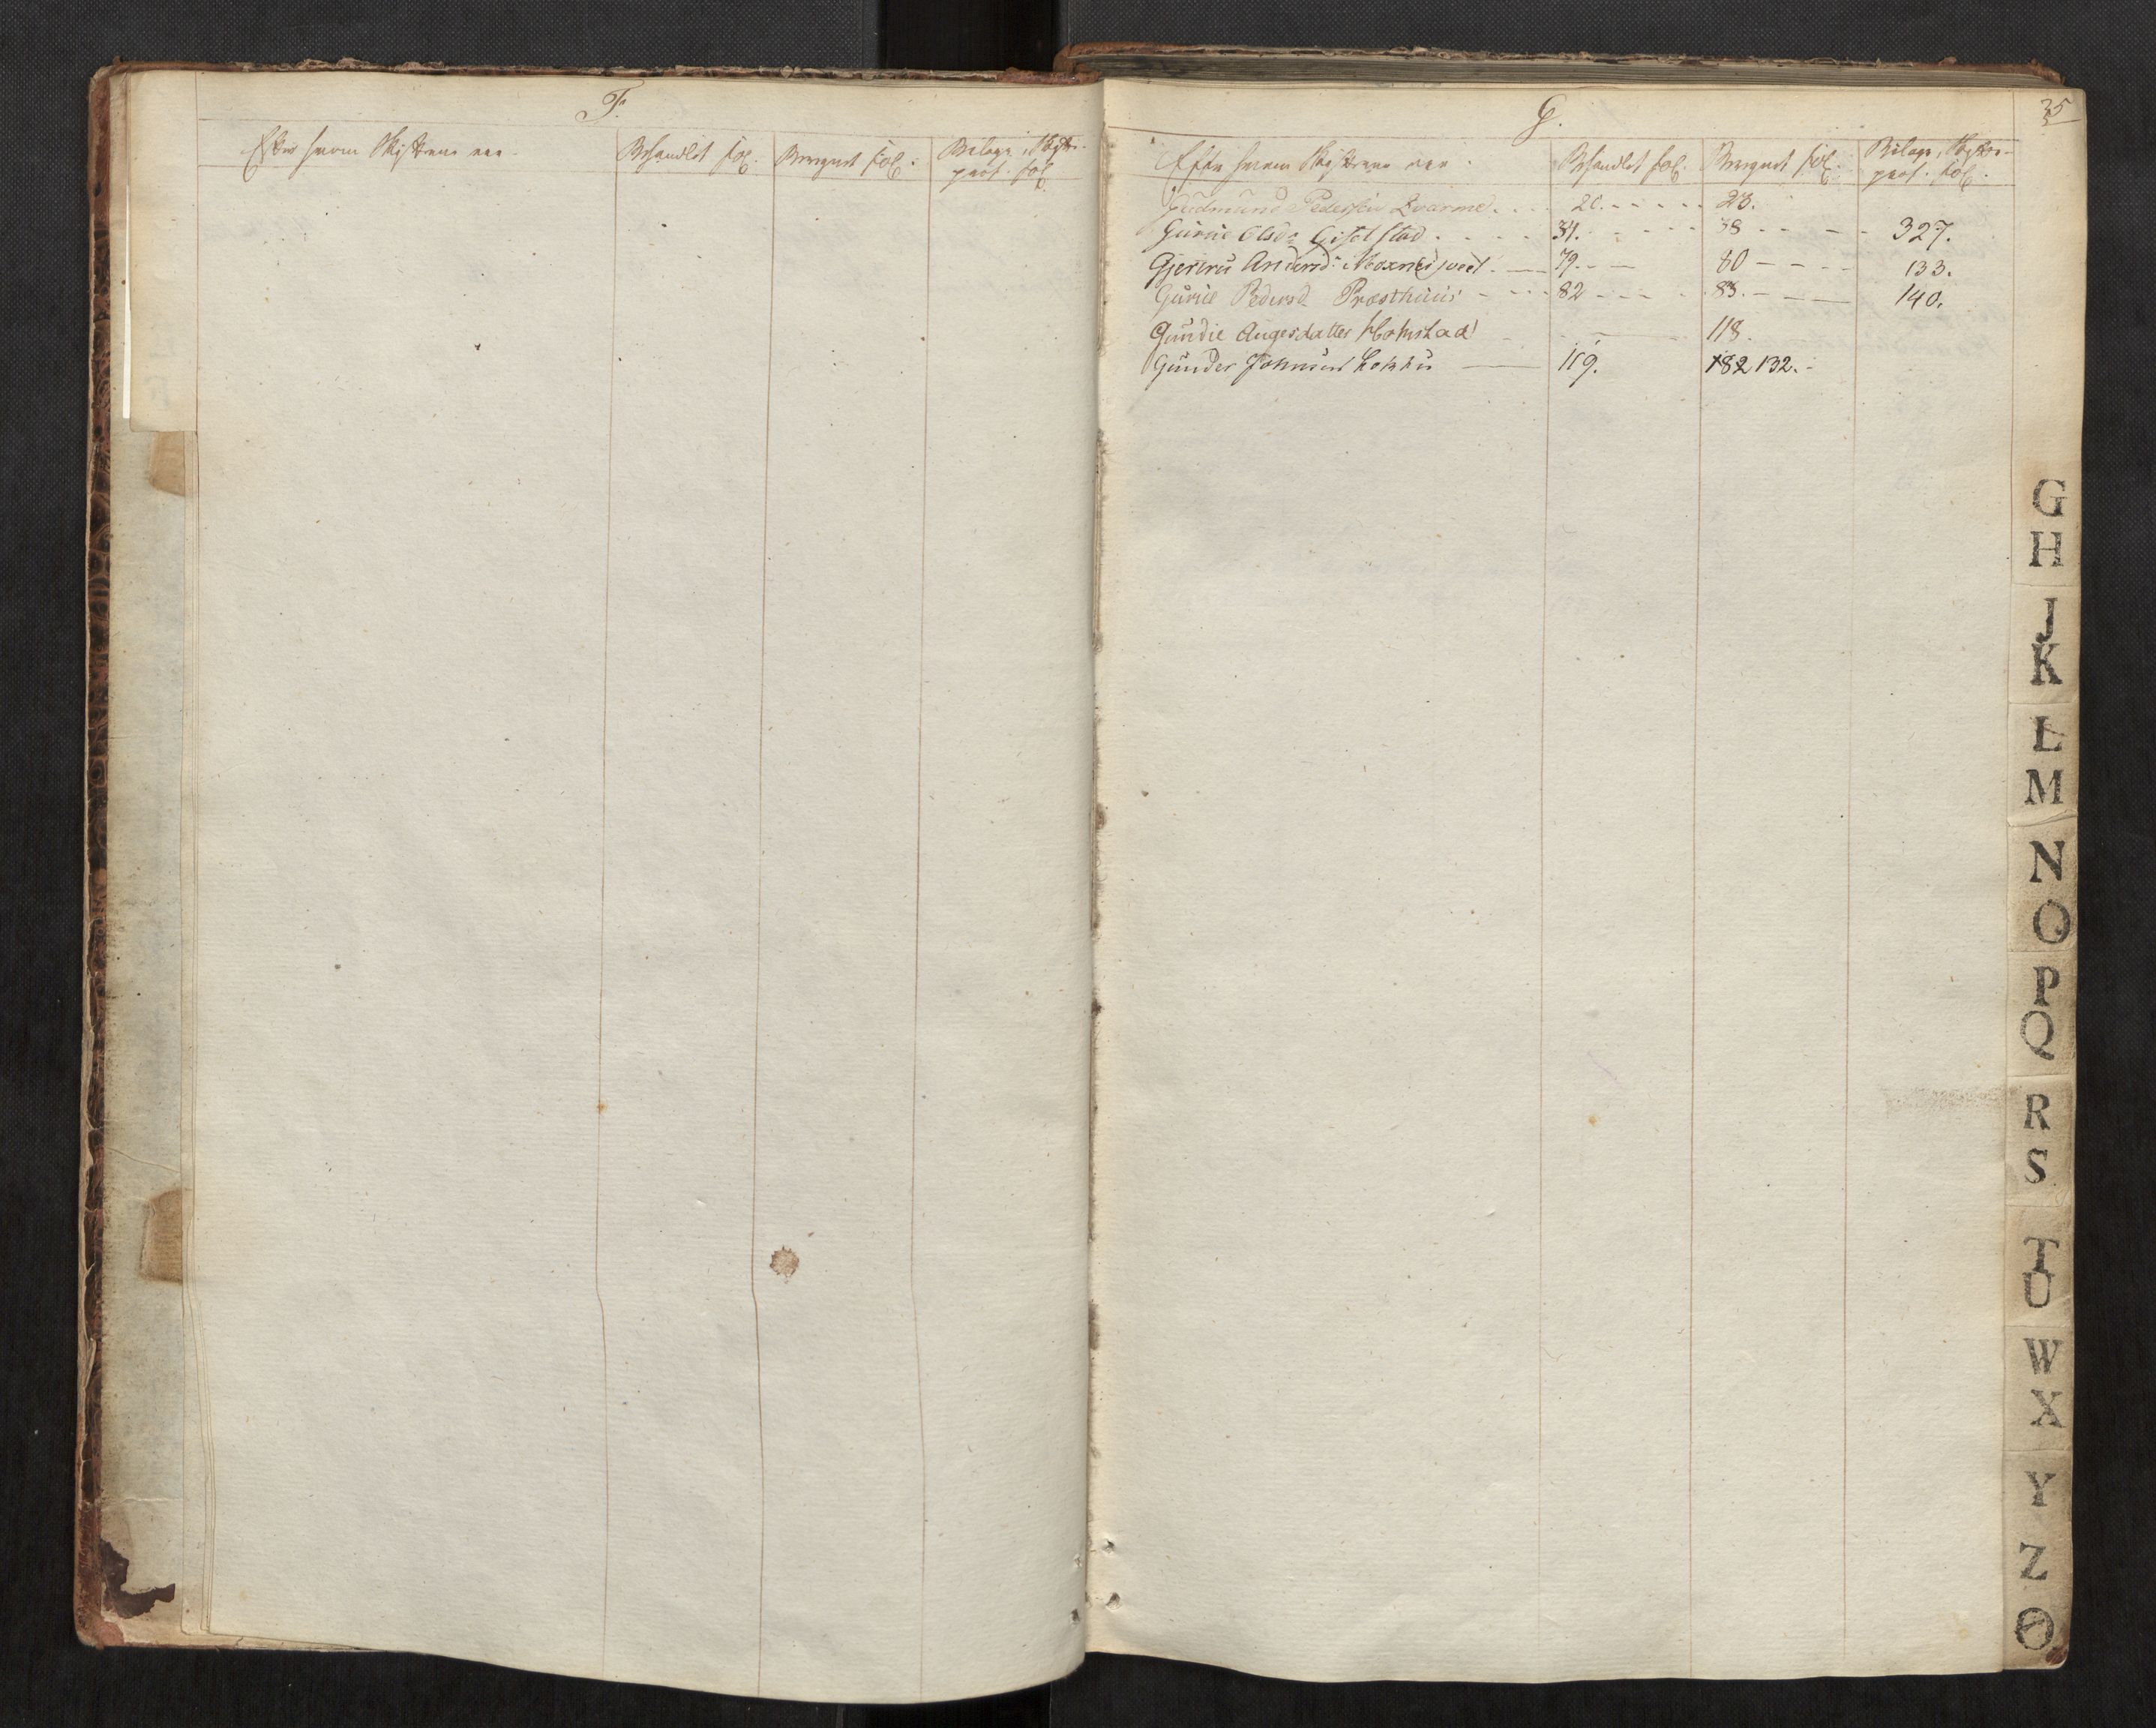 F.
Efter hvem Skiftene ere.
Behandlet fol.
Bereignet fol.
Bilage, Skifte-
prot. fol.
G.
35
Efter hvem Skiftene ere.
Behandlet fol.
Bereignet fol.
Bilage, Skifte-
prot. fol.
Gudmund Pedersen Qvarme. 20. 23.
Gurue Olsdr Giselstad 34. 38 327.
Gjertru Andersd: Moxnes 79. 80 133.
Gurue Pedersd Præsthuus 82 83. 140.
Gundie Augesdatter Holmstad 118.
Gunder Johnsen 119. 182 132.
G
H
J
K
L
M
N
O
P
Q
R
S
T
U
W
X
Y
Z
Ø